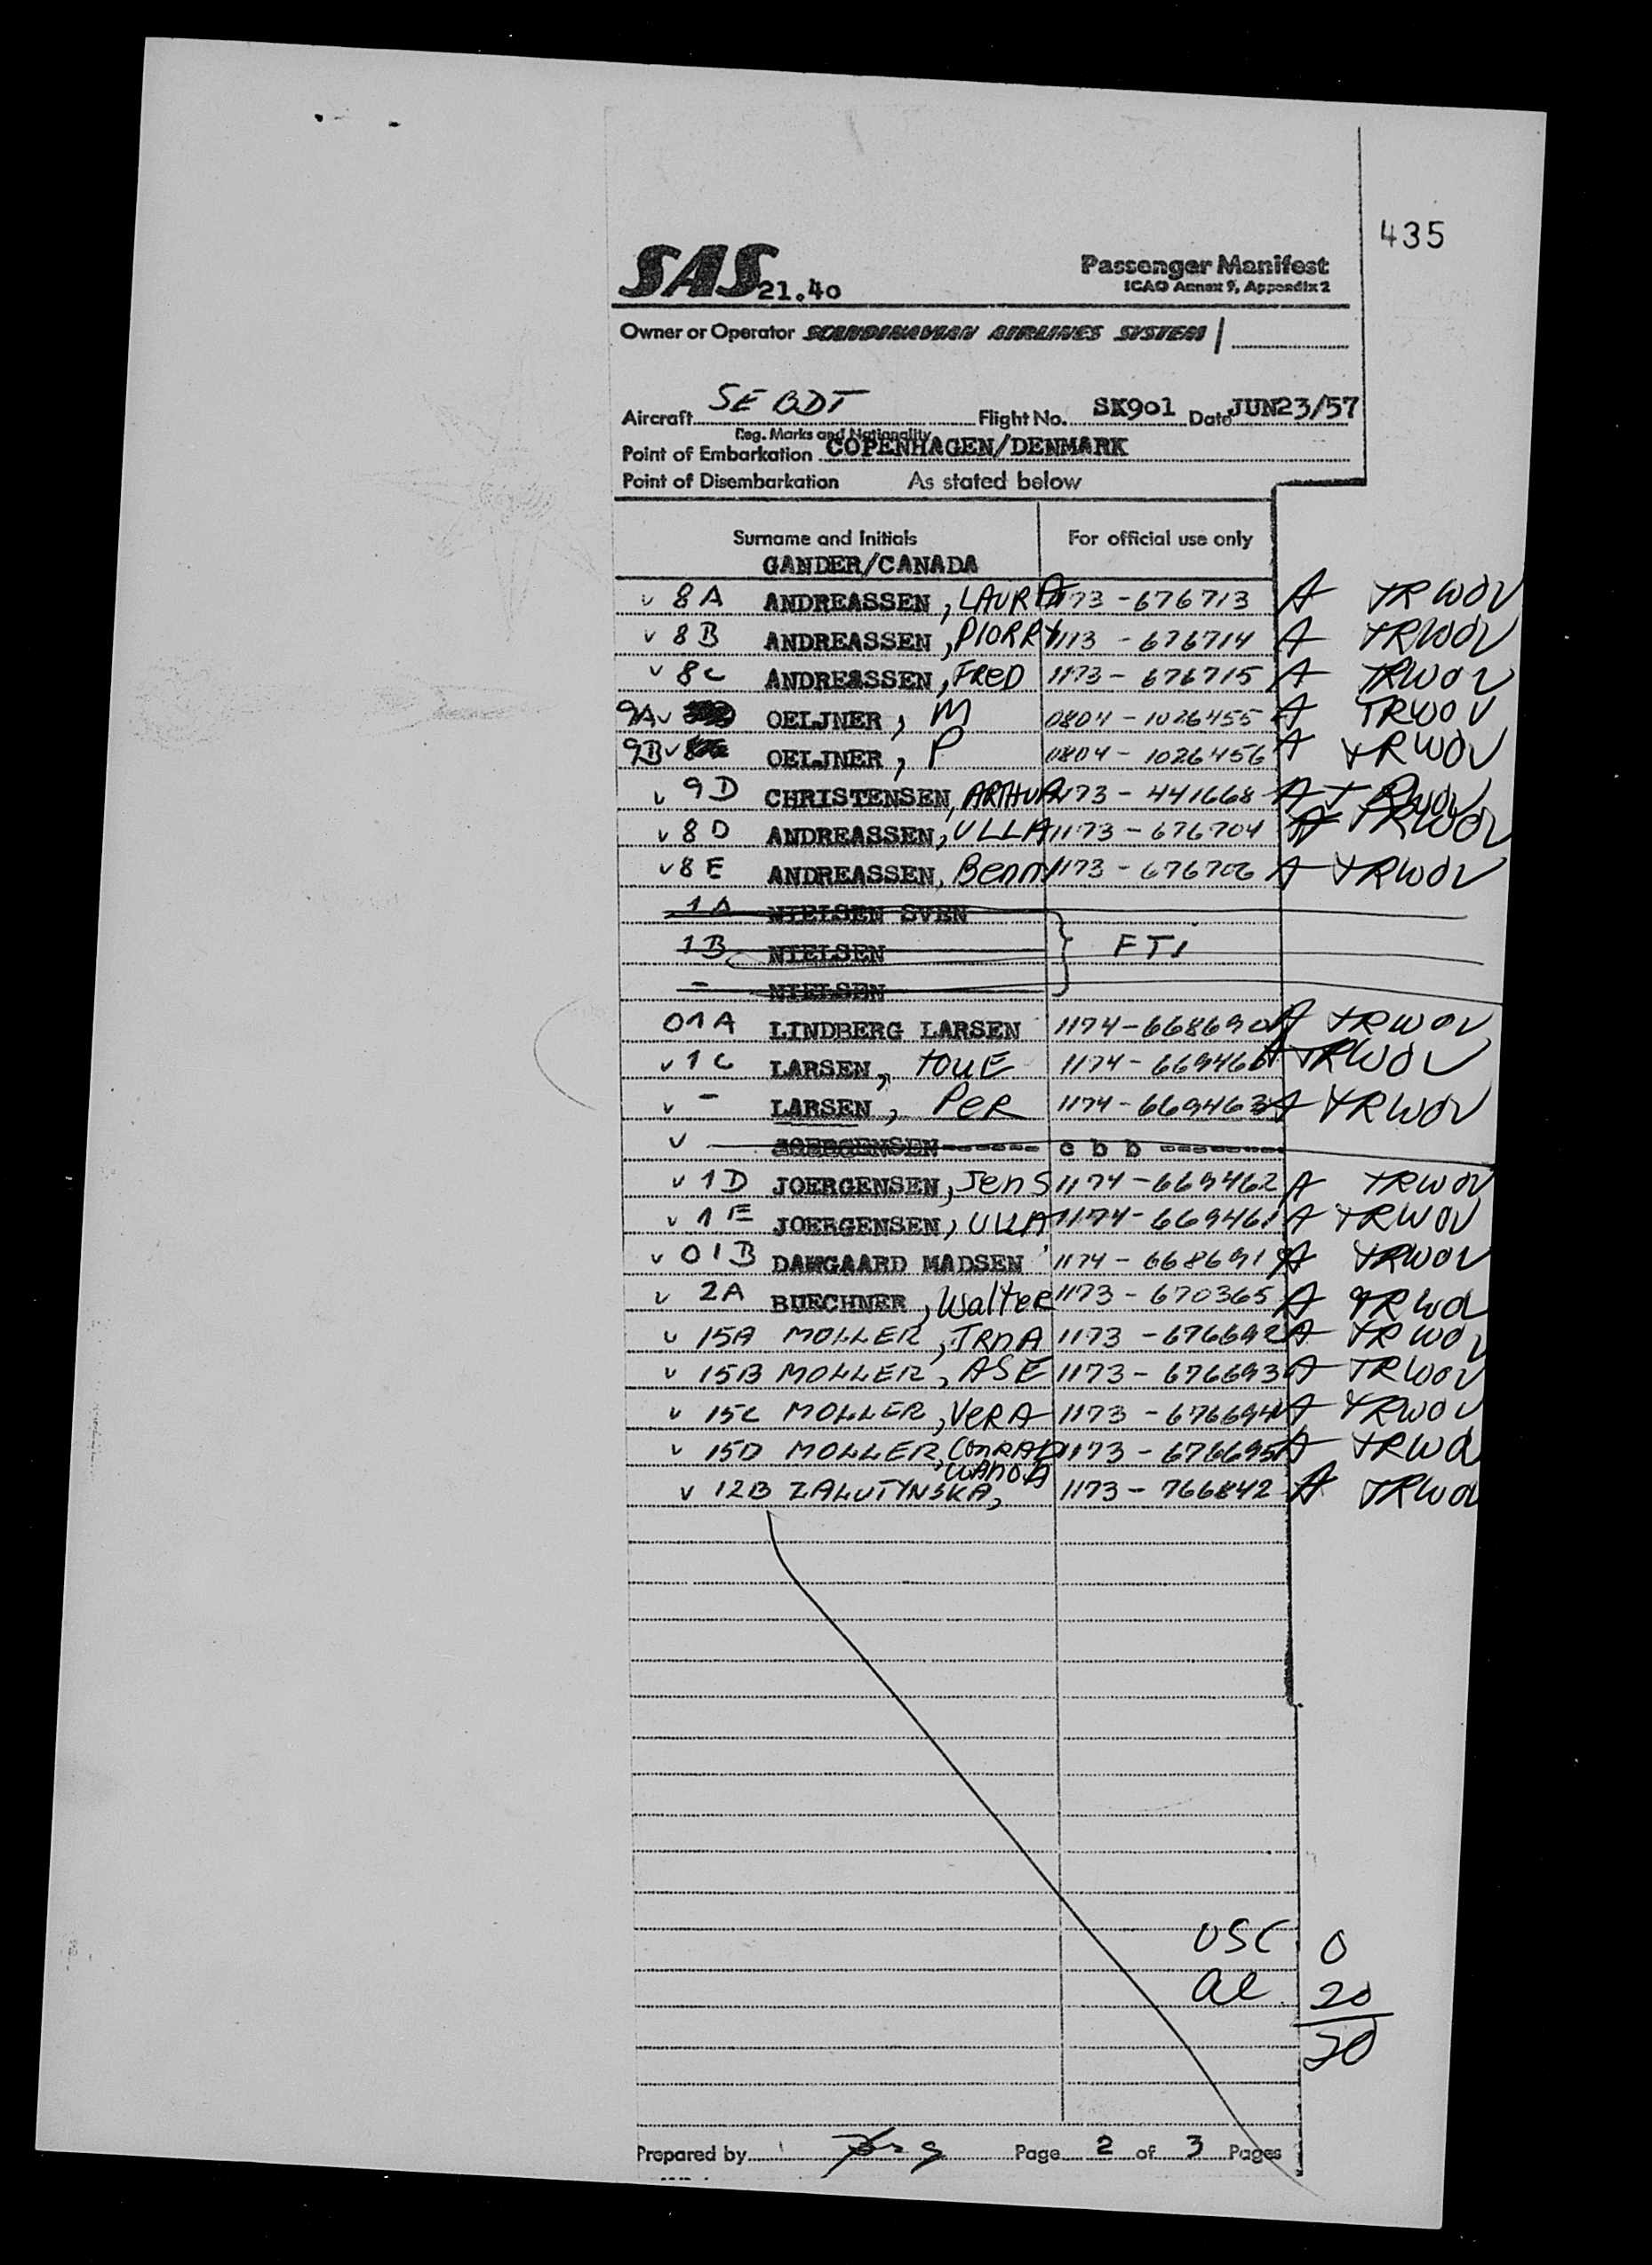 435
SAS 21.40 Passenger Manifest
ICAO Annex 9, Appendix 2
Owner or Operator SCANDINAVIAN AIRLINES SYSTEM
Aircraft SE BDT Flight No. SK901 Date JUN23/57
Reg. Marks and Nationality
Point of Embarkation COPENHAGEN/DENMARK
Point of Disembarkation As stated below
Surname and Initials For official use only
GANDER/CANADA
v 8A ANDREASSEN, LAURA 1173-676713 A TRWOV
v 8B ANDREASSEN, PIORRY 1173-676714 A TRWOV
v 8C ANDREASSEN, FReD 1173-676715 A TRWOV
9A v OELJNER, M 0804-1026455 A TRWOV
9B v OELJNER, P 0804-1026456 A TRWOV
v 9D CHRISTENSEN, ARTHUR 1173-441668 A TRWOV
v 8D ANDREASSEN, ULLA 1173-676704 A TRWOV
v 8E ANDREASSEN, Benny 1173-676706 A TRWOV
1A NIELSEN SVEN
1B NIELSEN FTI
- NIELSEN
01A LINDBERG LARSEN 1174-668690 A TRWOV
v 1C LARSEN, TOUE 1174-669460 A TRWOV
v - LARSEN, PeR 1174-669463 A TRWOV
v JOERGENSEN ------ c b b --------
v 1D JOERGENSEN, Jens 1174-669462 A TRWOV
v 1E JOERGENSEN, ULLA 1174-669461 A TRWOV
v 01B DAMGAARD MADSEN 1174-668691 A TRWOV
v 2A BUECHNER, Walter 1173-670365 A TRWOV
v 15A MOLLER, IRnA 1173-676692 A TRWOV
v 15B MOLLER, ASE 1173-676693 A TRWOV
v 15C MOLLER, VeRA 1173-676694 A TRWOV
v 15D MOLLER, ConRAD 1173-676695 A TRWOV
v 12B ZALUTYNSKA, WANDA 1173-766842 A TRWOV
USC 0
al 20
20
Prepared by Page 2 of 3 Pages